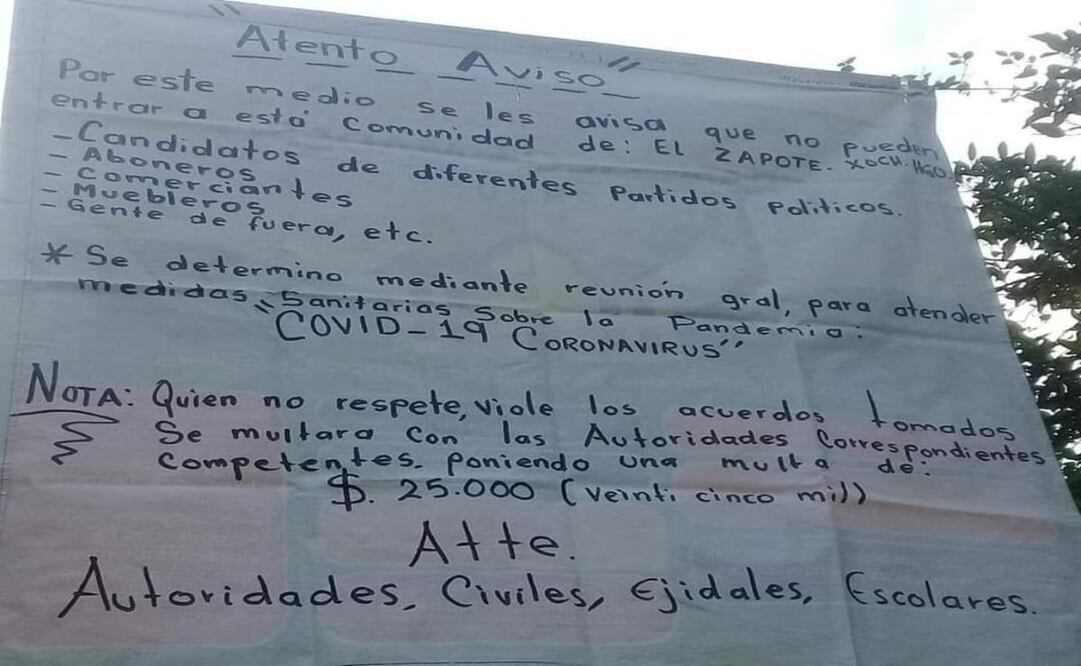 "Atento Aviso"
Por este medio se les avisa que no pueden
entrar a está comunidad de: EL ZAPOTE. XOCH. HGO.
- Candidatos de diferentes Partidos Politicos.
- Aboneros
- Comerciantes
- Muebleros
- Gente de fuera, etc.
* Se determino mediante reunión gral, para atender
medidas Sanitarias Sobre la Pandemia:
"COVID-19 CORONAVIRUS"
NOTA: Quien no respete, viole los acuerdos tomados
Se multara con las Autoridades Correspondientes
Competentes. Poniendo una multa de:
$. 25.000 (veinti cinco mil)
Atte.
Autoridades, Civiles, Ejidales, Escolares.